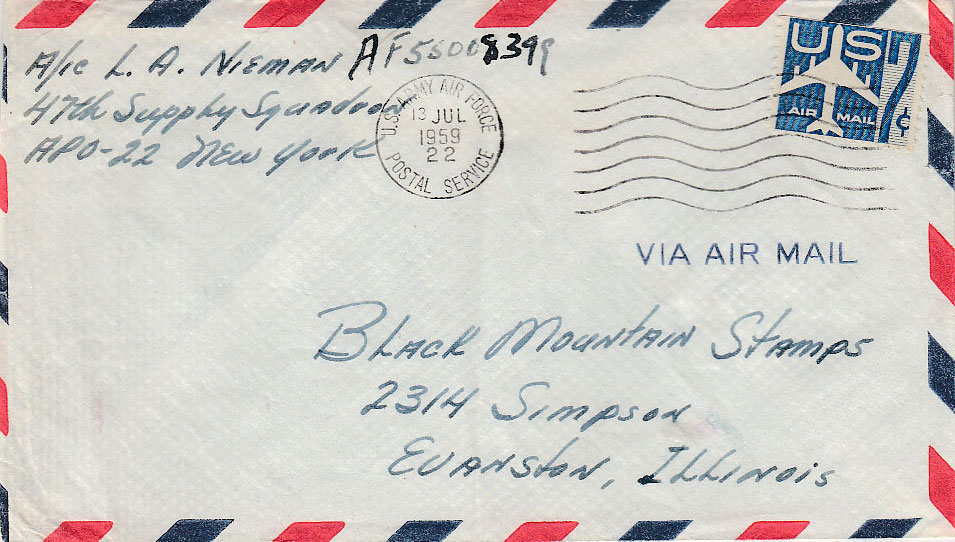 A/1c L. A. Nieman
47th Supply Squadron
APO-22 New York
U.S. ARMY AIR FORCE
13 JUL
1959
22
POSTAL SERVICE
US 7¢
AIR MAIL
VIA AIR MAIL
Black Mountain Stamps
2314 Simpson
Evanston, Illinois